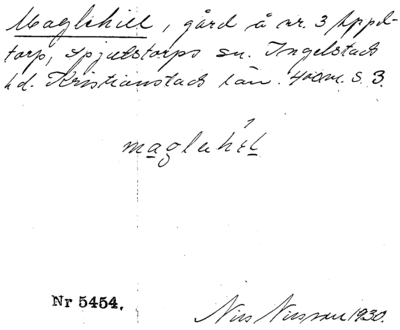 Maglehill, gård å nr. 3 Uppel-
torp, Spjutstorps sn. Ingelstads
hd. Kristianstads län. 400m. S. 3.
magləhɛl
Nr 5454.
Nils Nilsson 1930.